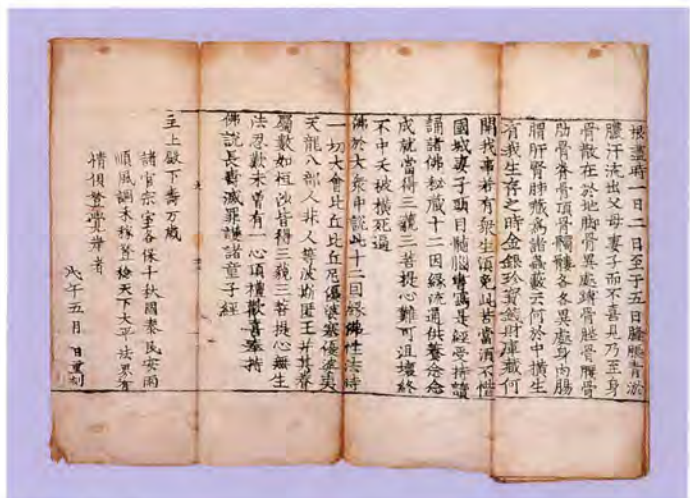 根盡時一日二日至于五日膖脹青淤
膿汗流出父母妻子而不喜見乃至身
骨散在於地脚骨異處蹲骨脛骨腰骨
肋骨脊骨頂骨髑髏各各異處身肉腸
胃肝腎肺藏為諸蟲藪云何於中橫生
有我生存之時金銀珍寶錢財庫藏何
開我事若有衆生須免此苦當須不惜
國城妻子頭目髓腦書寫是經受持讀
誦諸佛秘藏十二因緣流通供養念念
成就當得三藐三菩提心難可沮壞終
不中夭被橫死逼
佛於大衆中說此十二因緣佛性法時
一切大會比丘比丘尼優婆塞優婆夷
天龍八部人非人等波斯匿王幷其眷
屬數如恒沙皆得三藐三菩提心無生
法忍歎未曾有一心頂禮歡喜奉持
佛說長壽滅罪護諸童子經
主上殿下壽万歲
諸宮宗室各保千秋國泰民安雨
順風調禾稼登稔天下大平法界有
情俱登覺岸者
戊午五月 日重刻